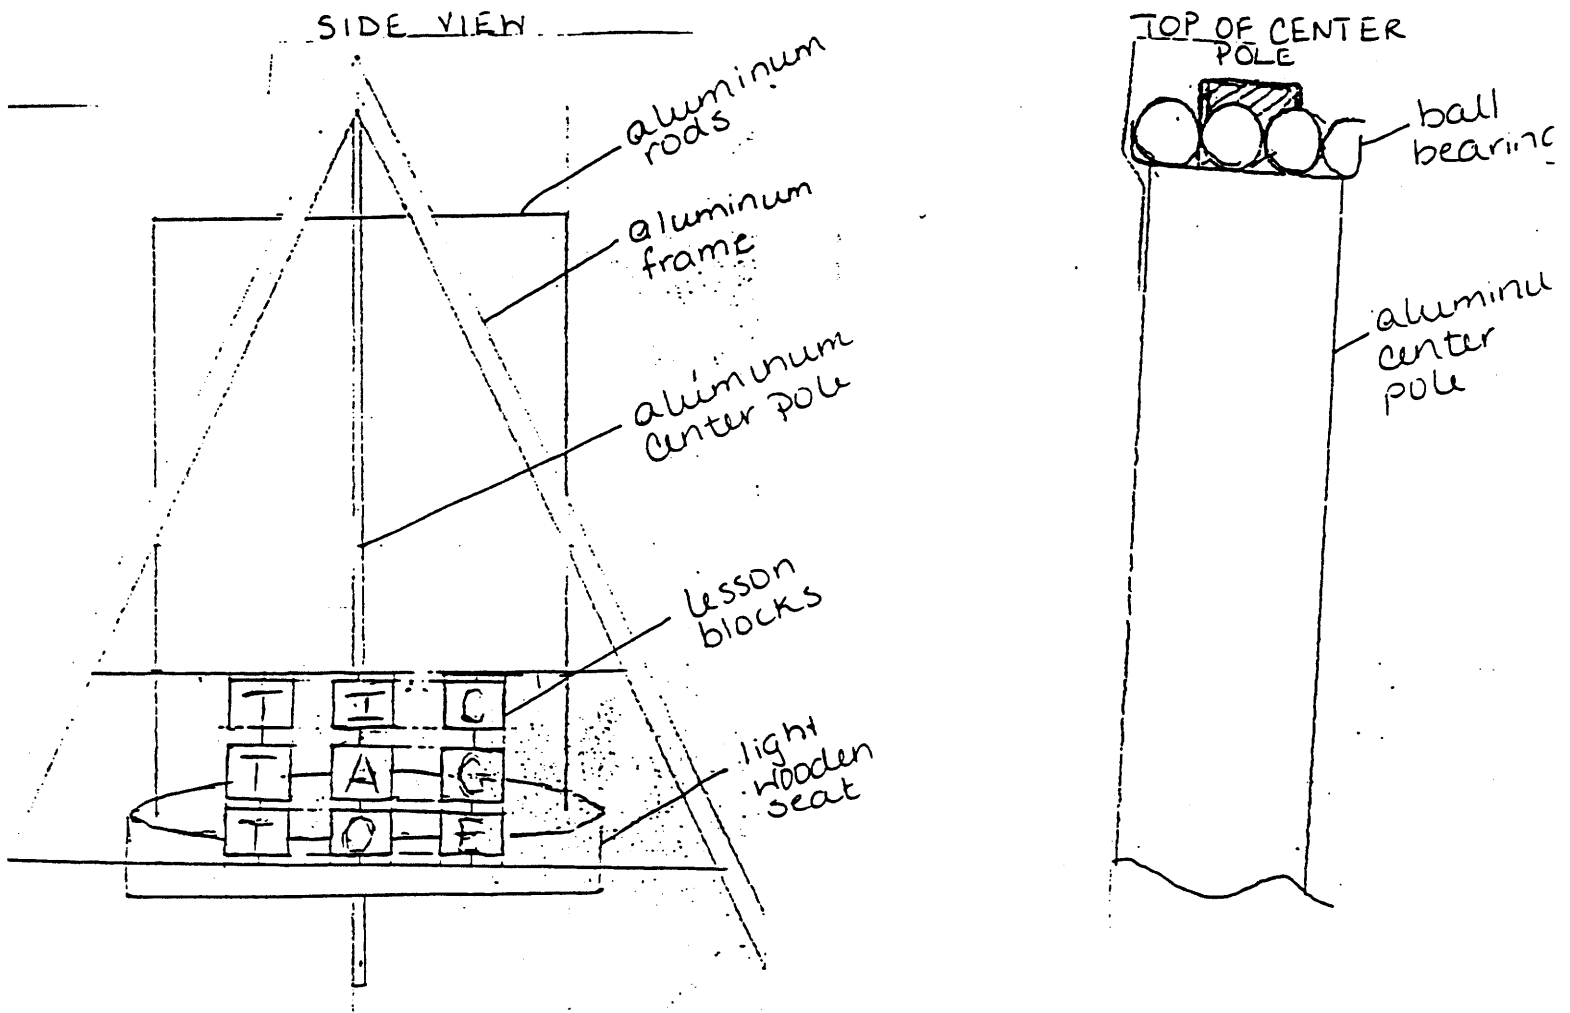 SIDE VIEW
aluminum
rods
aluminum
frame
aluminum
center pole
lesson
blocks
T I C
T A C
T O E
light
wooden
seat
TOP OF CENTER
POLE
ball
bearinc
aluminu
center
pole